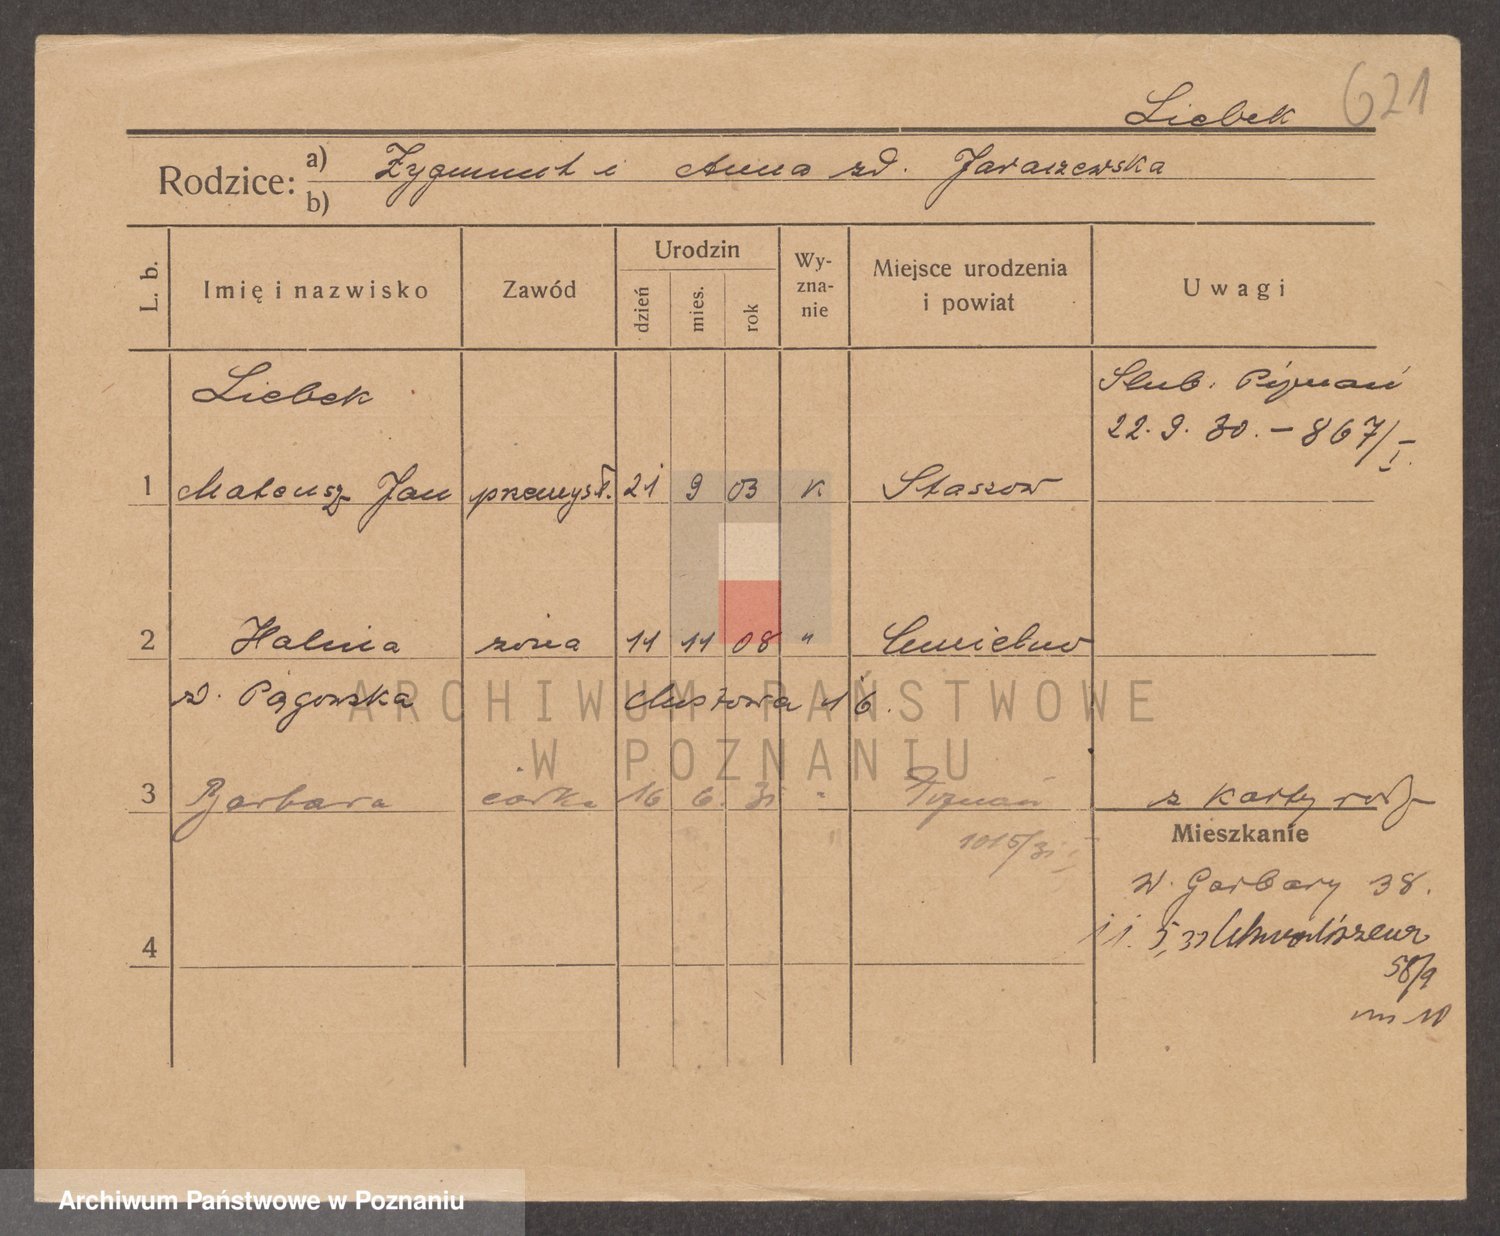 Liebek 621
Rodzice: a) Zygmunt i Anna zd. Jaraszewska
b)
L. b. Imię i nazwisko Zawód Urodzin dzień mies. rok Wyznanie Miejsce urodzenia i powiat Uwagi
Liebek Ślub. Poznań
22. 9. 30. – 867/I.
1 Mateusz Jan przemysł. 21 9 03 k Staszow
2 Halina żona 11 11 08 " Chmielno
z d. Pągowska 16.
3 Barbara córka 16 6. 31 " Poznań z karty rodz
1015/31 I
Mieszkanie
W. Garbary 38.
4 11. 5, 33
58/9
m 10
ARCHIWUM PAŃSTWOWE
W POZNANIU
Archiwum Państwowe w Poznaniu